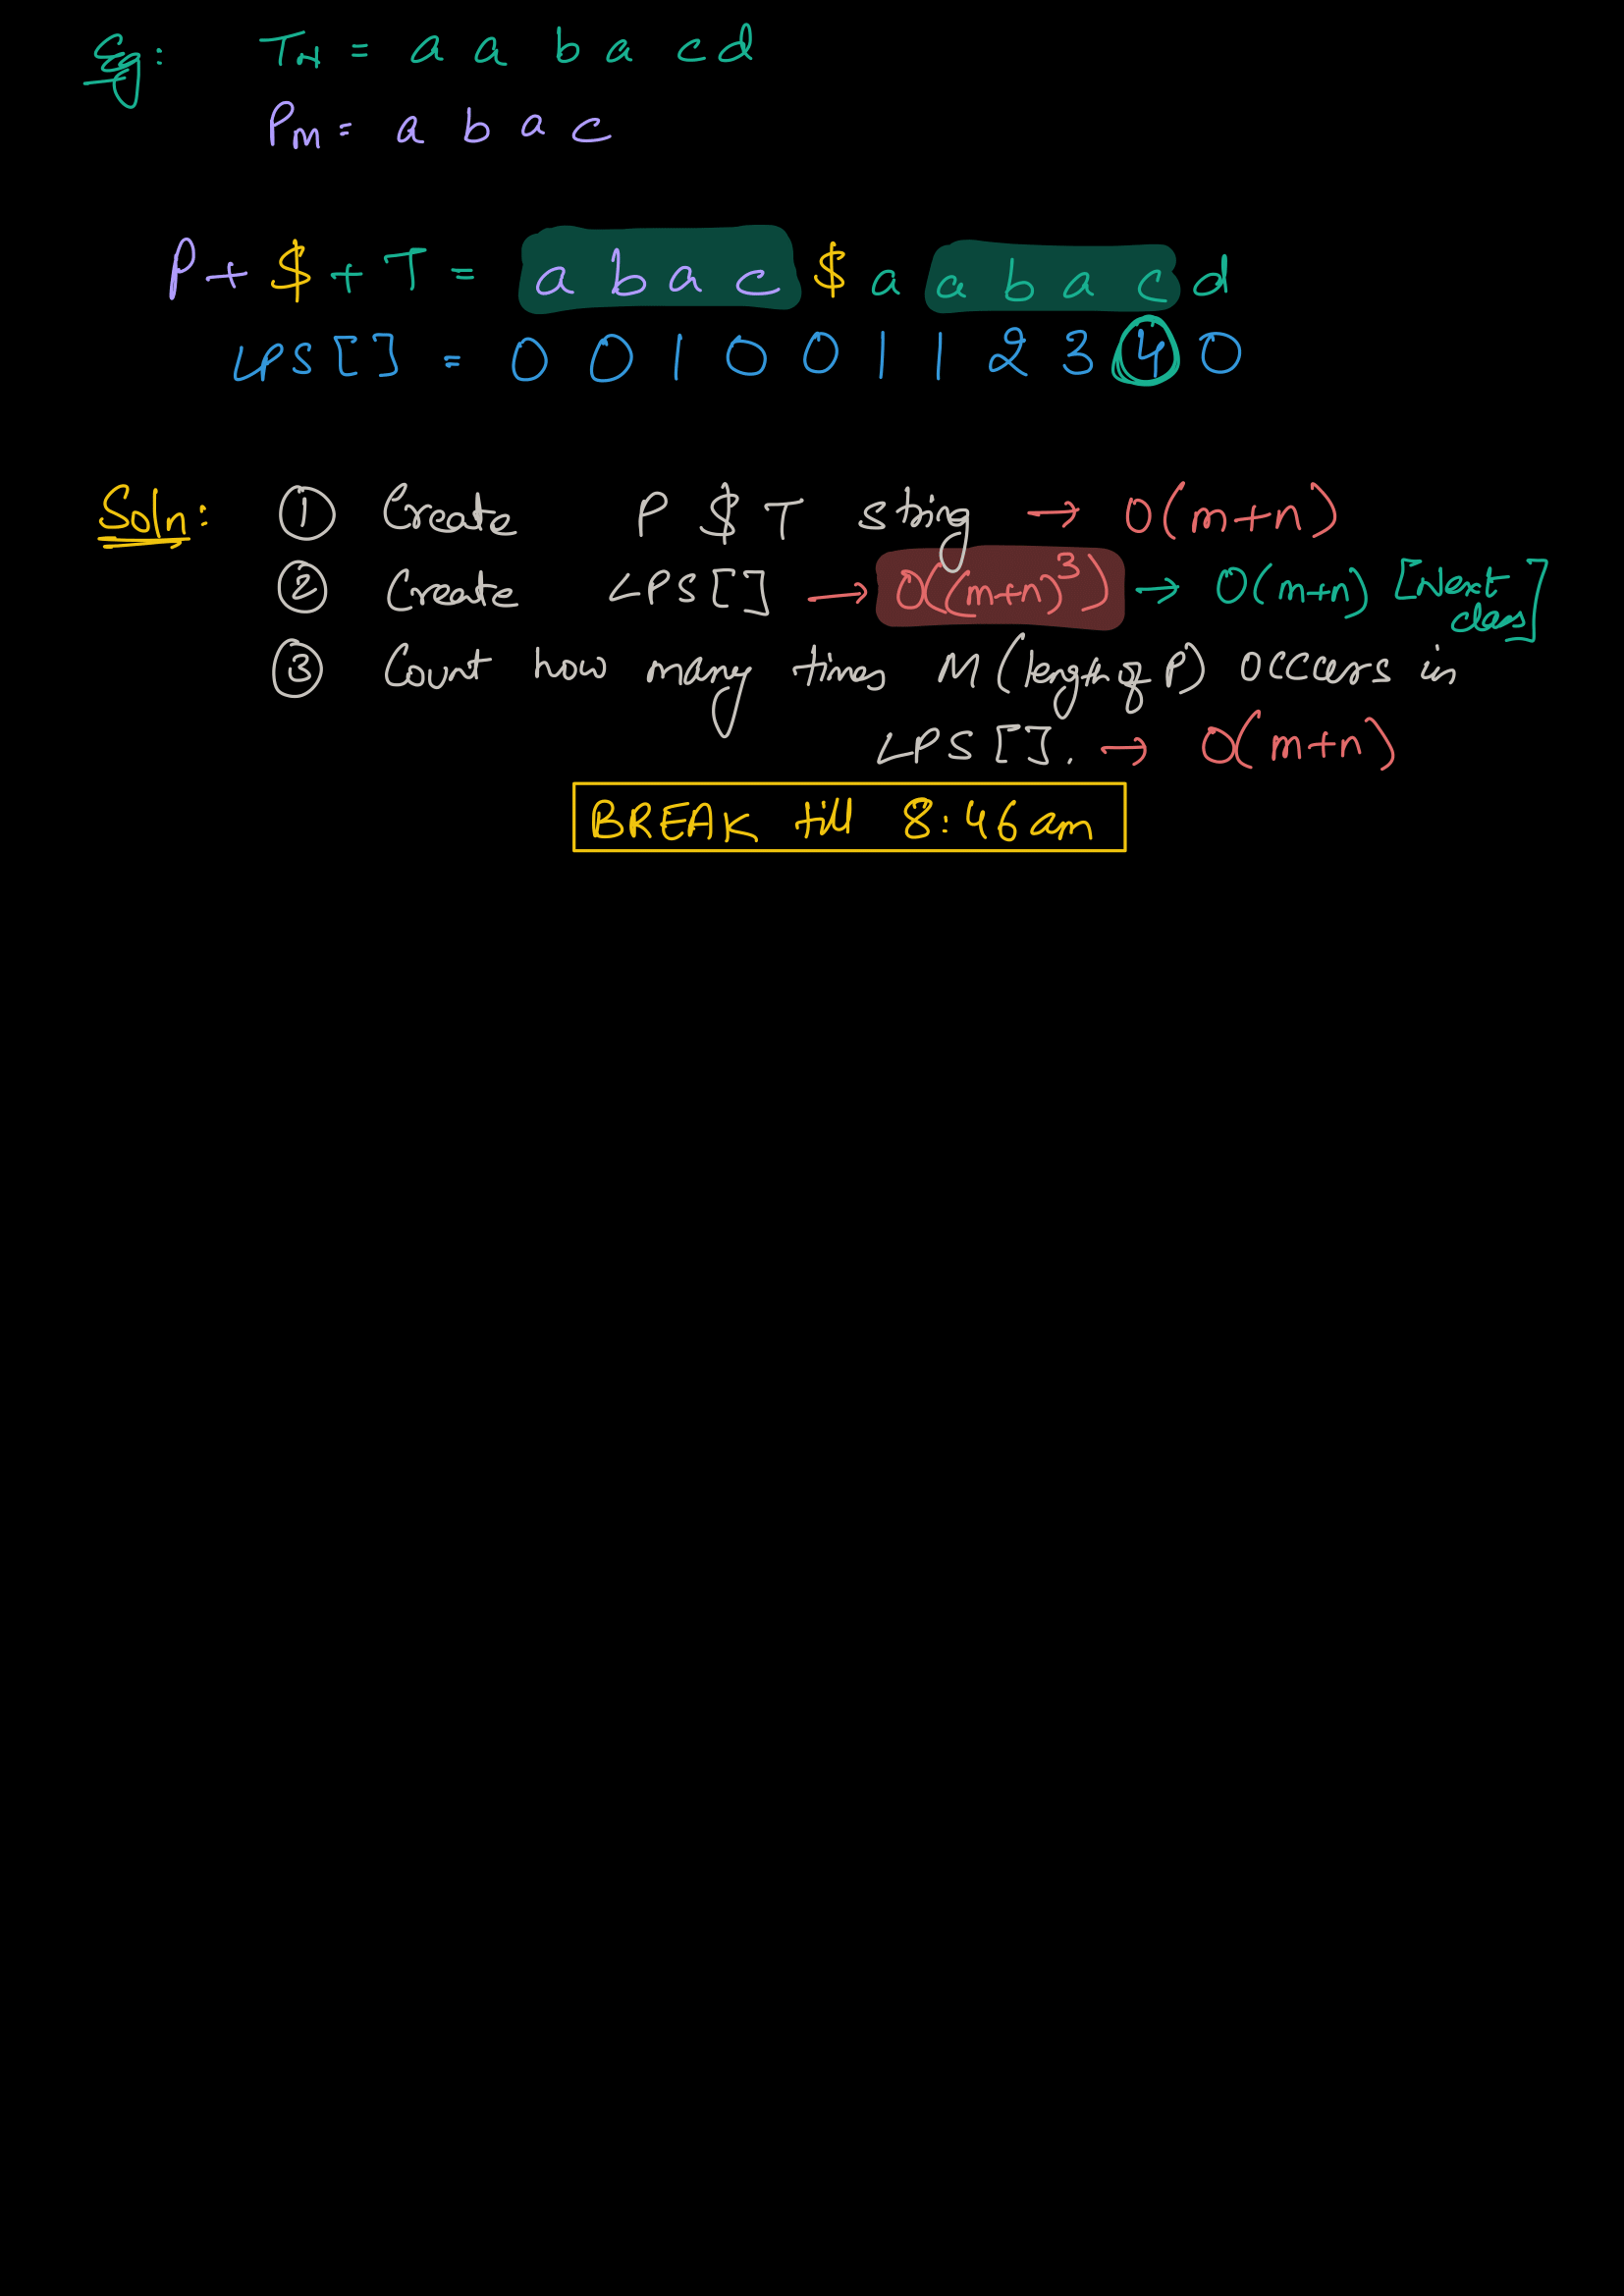 Eg: TN = a a b a c d
PM = a b a c
P + $ + T = a b a c $ a a b a c d
LPS[] = 0 0 1 0 0 1 1 2 3 4 0
Soln: ① Create P $ T string → O(m+n)
② Create LPS[] → O((m+n)³) → O(m+n) [Next class]
③ Count how many times M (length of P) occurs in
LPS[]. → O(m+n)
BREAK till 8:46am